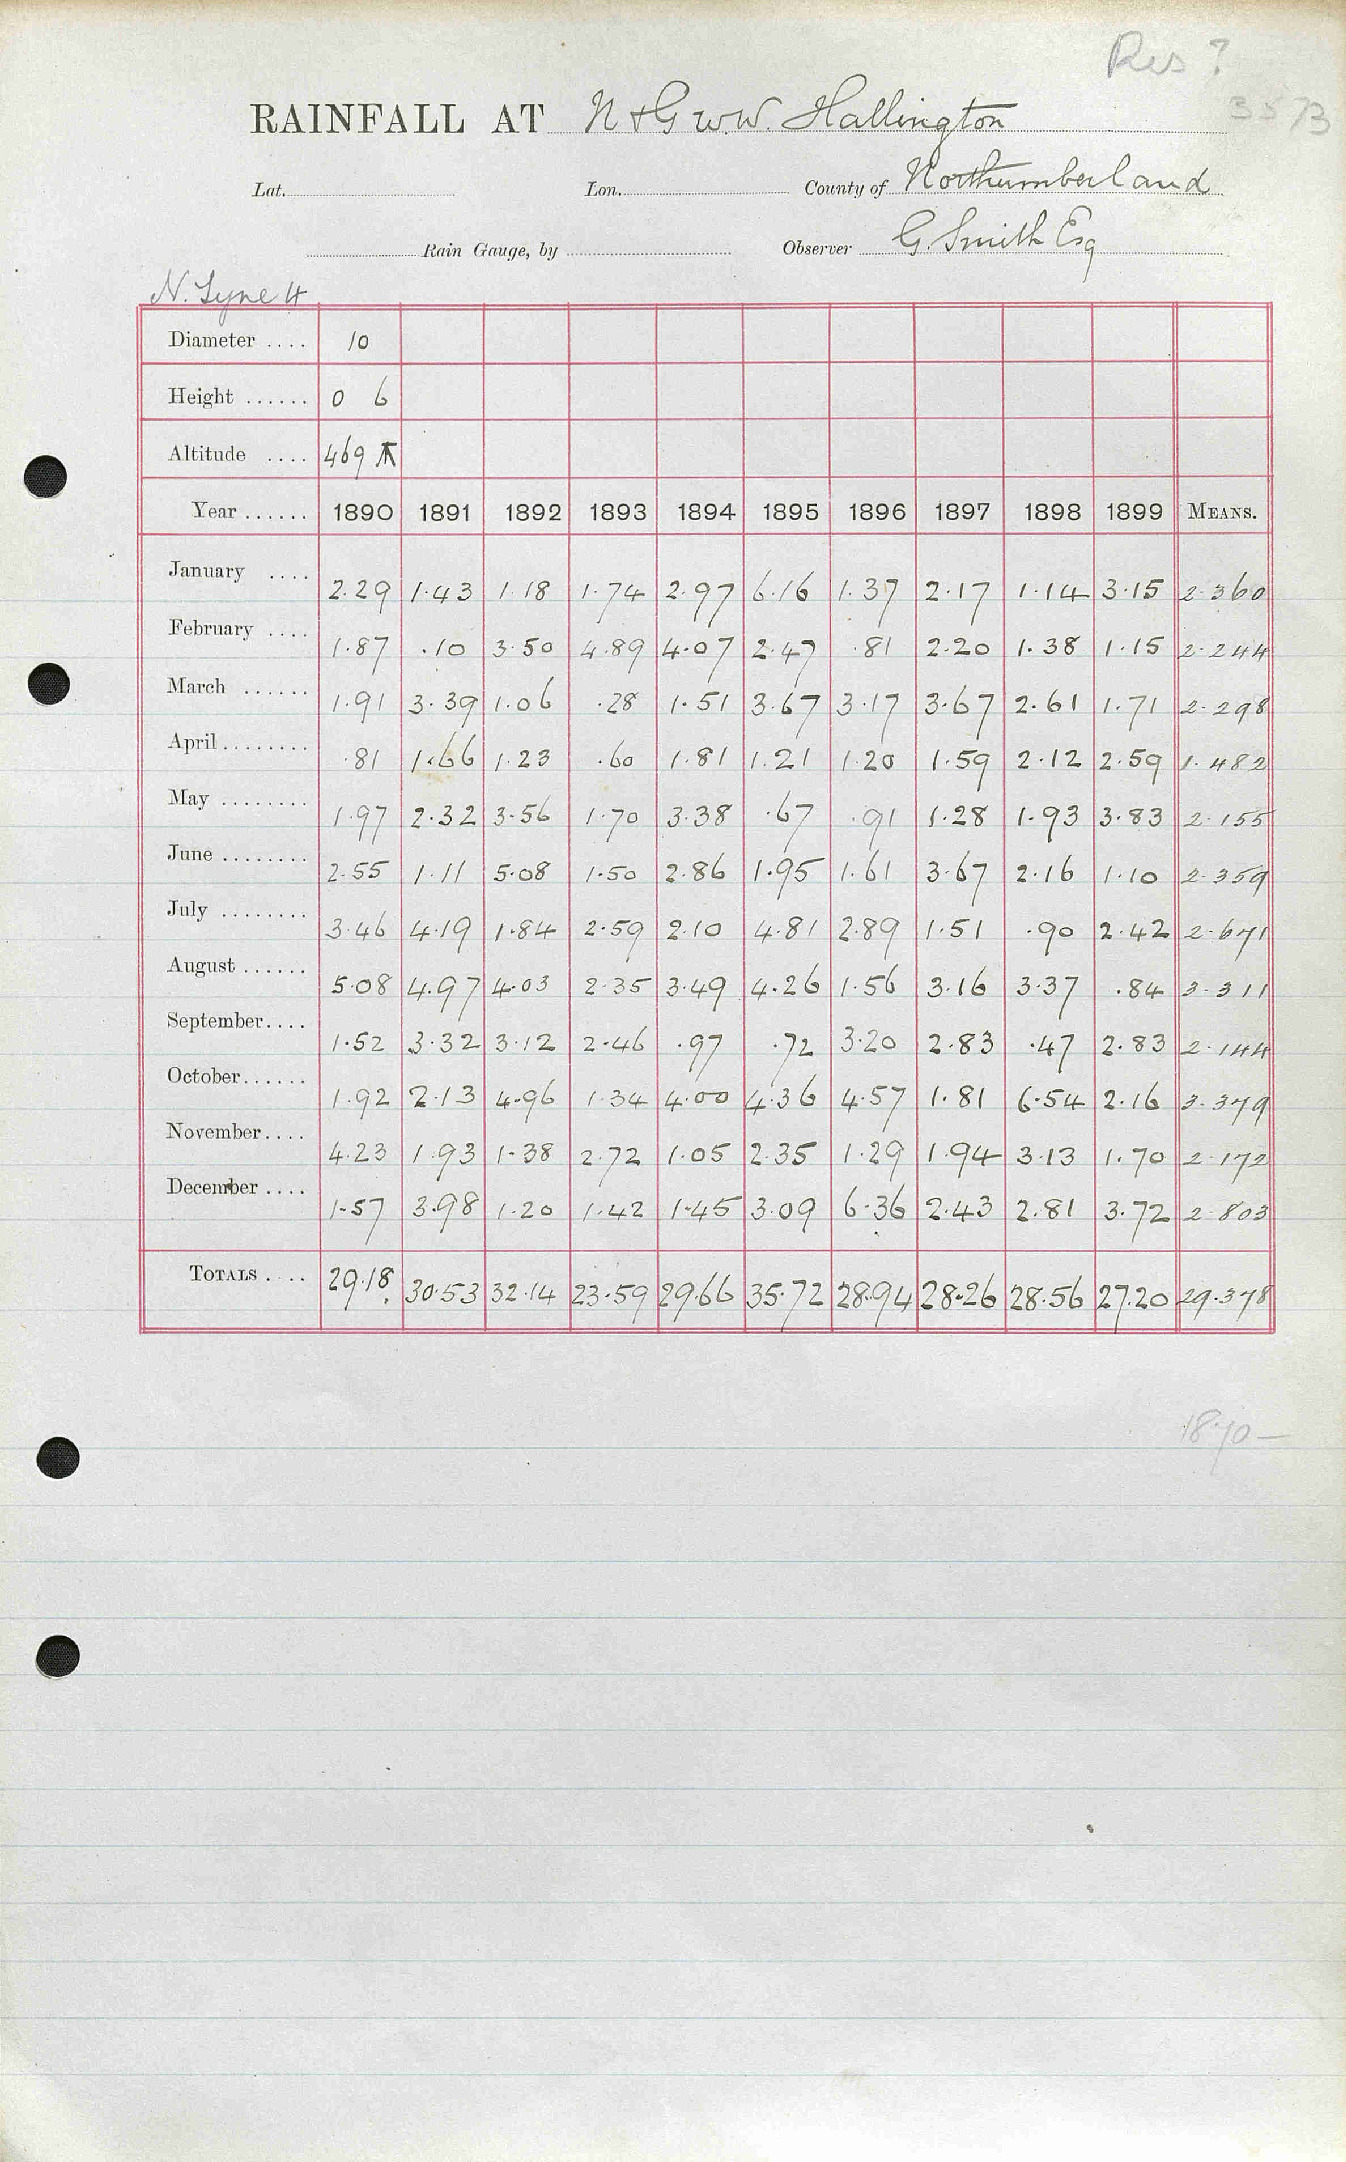 Res ?
RAINFALL AT N & G W W. Hallington 3573
Lat. Lon. County of Northumberland
Rain Gauge, by Observer G. Smith Esq
N. Tyne 4
Diameter .... 10
Height ...... 0 6
Altitude .... 469
Year ...... 1890 1891 1892 1893 1894 1895 1896 1897 1898 1899 MEANS.
January .... 2.29 1.43 1.18 1.74 2.97 6.16 1.37 2.17 1.14 3.15 2.360
February .... 1.87 .10 3.50 4.89 4.07 2.47 .81 2.20 1.38 1.15 2.244
March ...... 1.91 3.39 1.06 .28 1.51 3.67 3.17 3.67 2.61 1.71 2.298
April ........ .81 1.66 1.23 .60 1.81 1.21 1.20 1.59 2.12 2.59 1.482
May ........ 1.97 2.32 3.56 1.70 3.38 .67 .91 1.28 1.93 3.83 2.155
June ........ 2.55 1.11 5.08 1.50 2.86 1.95 1.61 3.67 2.16 1.10 2.359
July ........ 3.46 4.19 1.84 2.59 2.10 4.81 2.89 1.51 .90 2.42 2.671
August ...... 5.08 4.97 4.03 2.35 3.49 4.26 1.56 3.16 3.37 .84 3.311
September.... 1.52 3.32 3.12 2.46 .97 .72 3.20 2.83 .47 2.83 2.144
October...... 1.92 2.13 4.96 1.34 4.00 4.36 4.57 1.81 6.54 2.16 3.379
November.... 4.23 1.93 1.38 2.72 1.05 2.35 1.29 1.94 3.13 1.70 2.172
December .... 1.57 3.98 1.20 1.42 1.45 3.09 6.36 2.43 2.81 3.72 2.803
TOTALS .... 29.18 30.53 32.14 23.59 29.66 35.72 28.94 28.26 28.56 27.20 29.378
1870 —